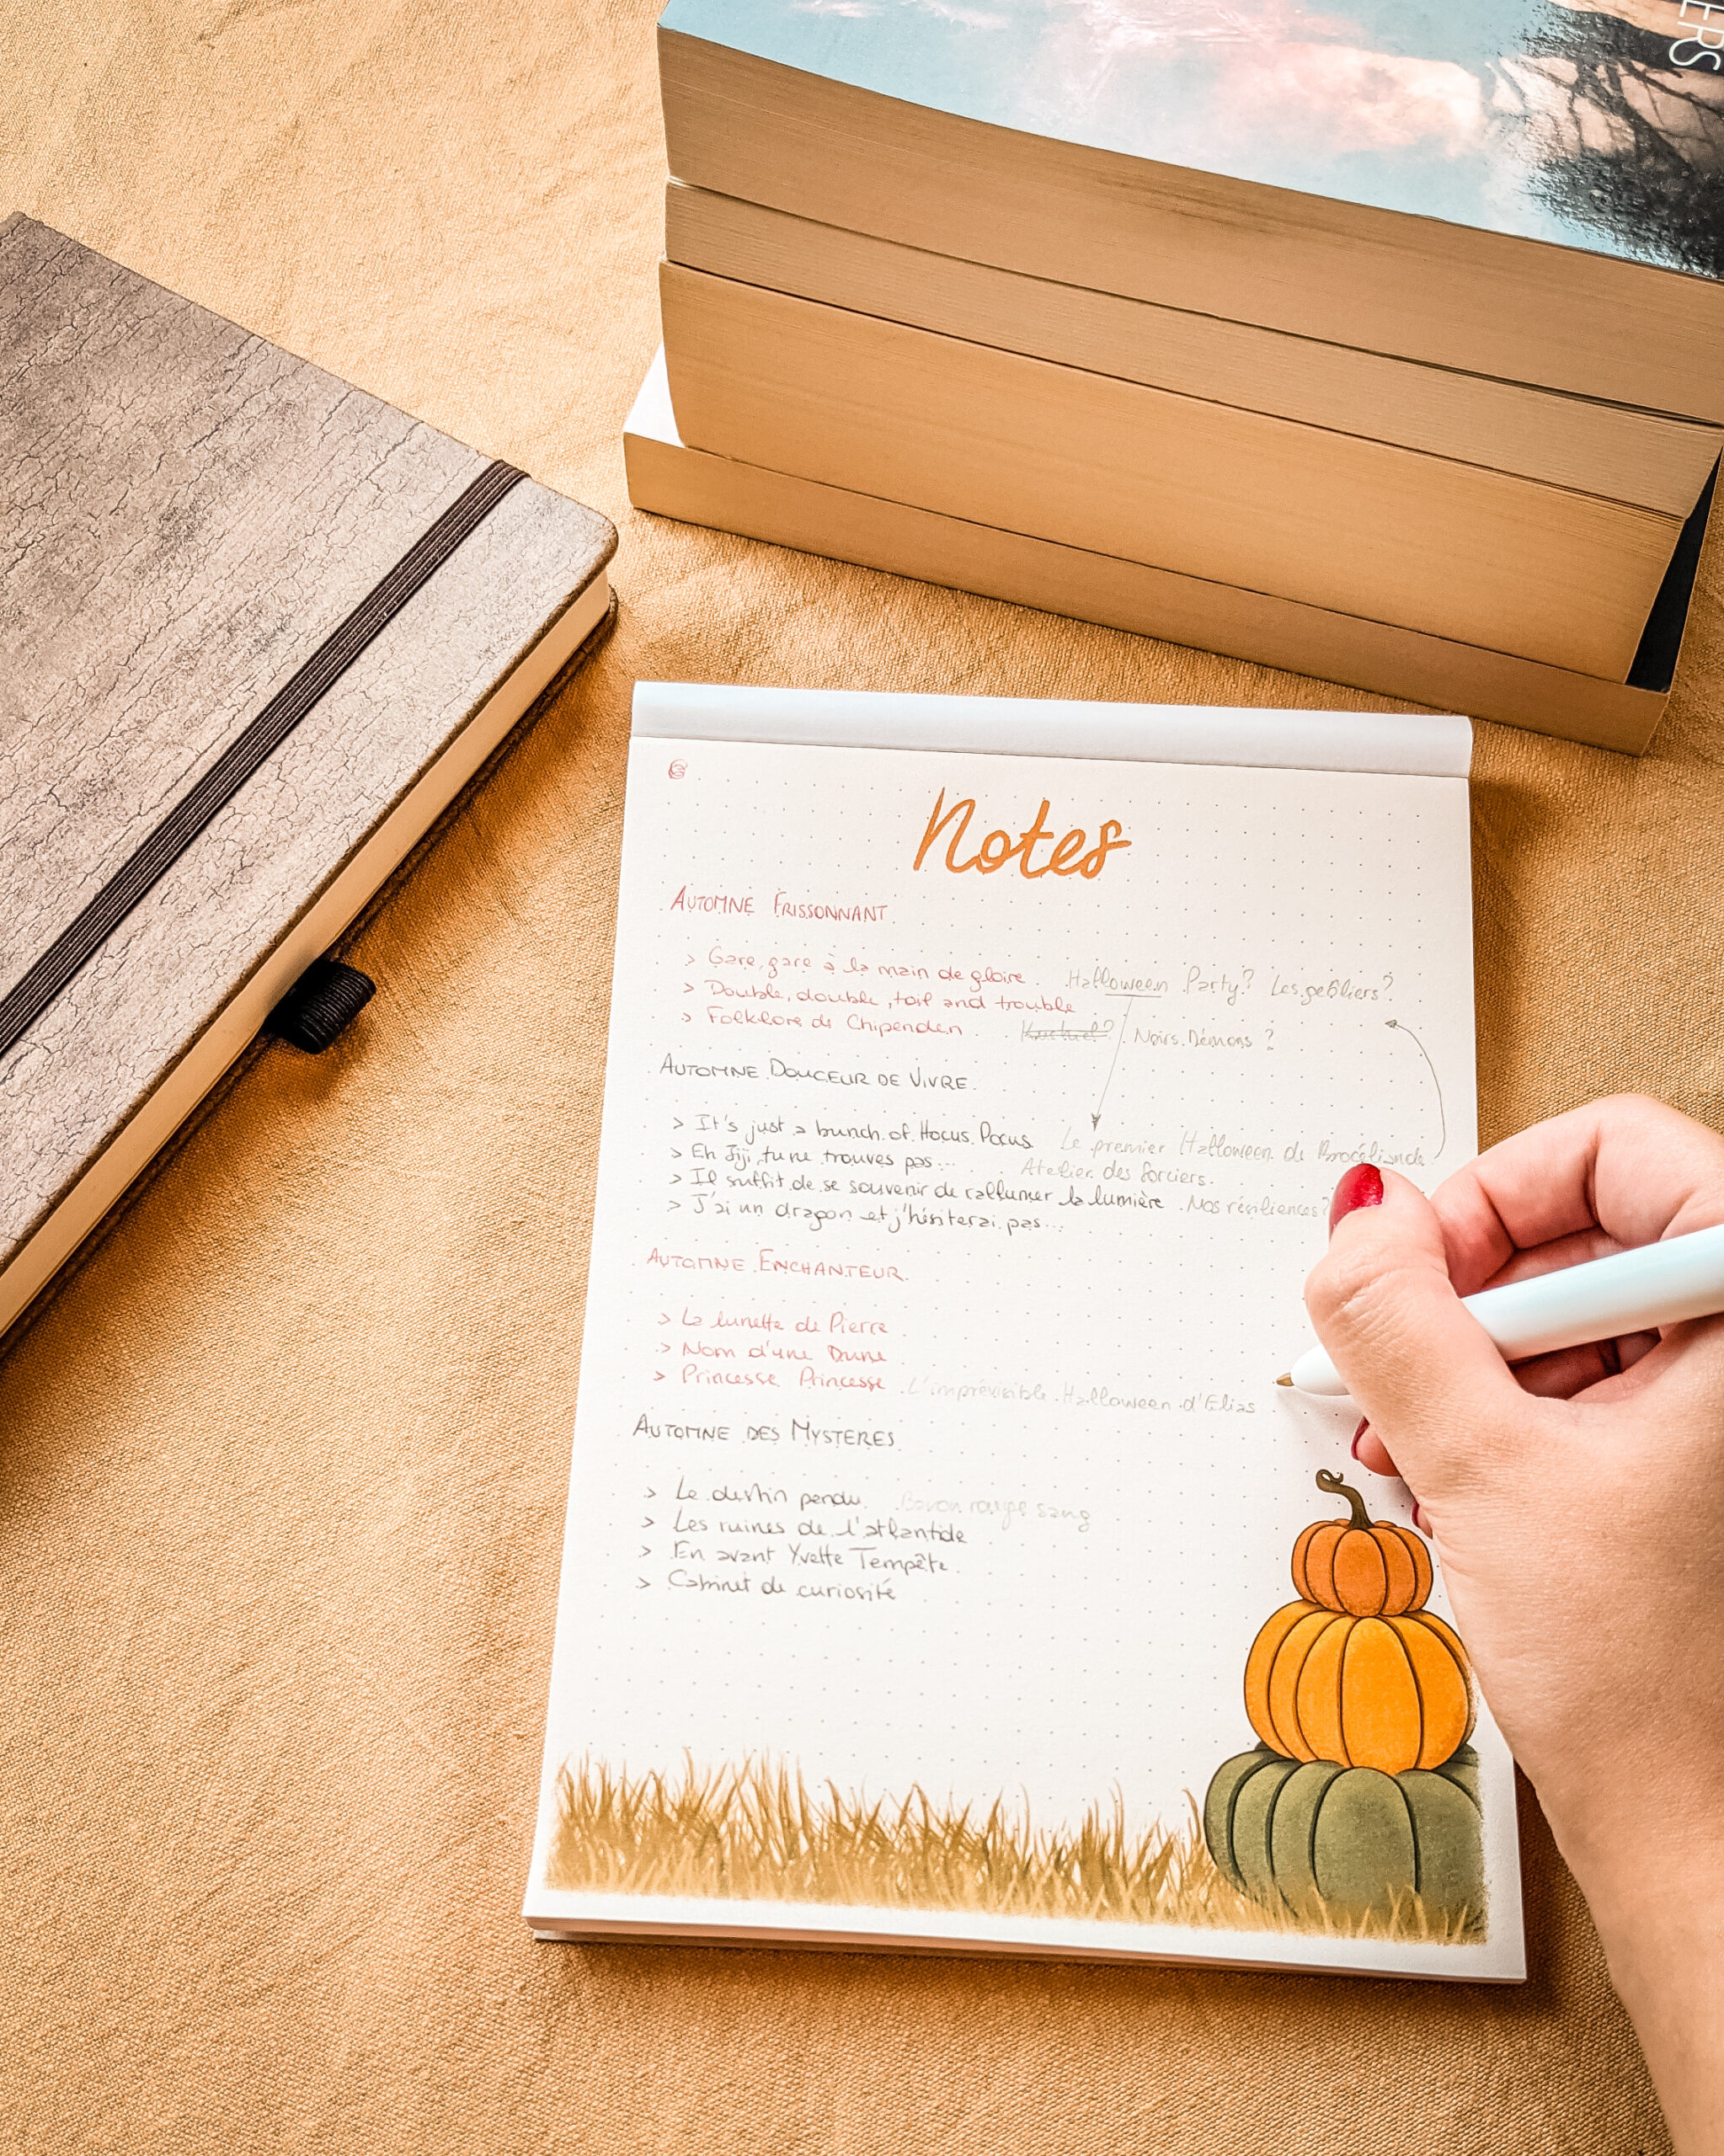 ERS
Notes
AUTOMNE FRISSONNANT.
> Gare, gare à la main de gloire. Halloween Party? Les geôliers?
> Double, double, toil and trouble
> Folklore de Chipenden. Noirs Démons?
AUTOMNE DOUCEUR DE VIVRE.
> It's just a bunch of Hocus Pocus Le premier Halloween de Brocéliande
> Eh Jiji, tu ne trouves pas... Atelier des Sorciers.
> Il suffit de se souvenir de rallumer la lumière. Nos résiliences?
> J'ai un dragon et j'hésiterai pas...
AUTOMNE ENCHANTEUR.
> La lunette de Pierre
> Nom d'une Dune
> Princesse Princesse. L'imprévisible Halloween d'Elias
AUTOMNE DES MYSTERES
> Le destin pendu. rouge sang
> Les ruines de l'atlantide
> En avant Yvette Tempête.
> Cabinet de curiosité